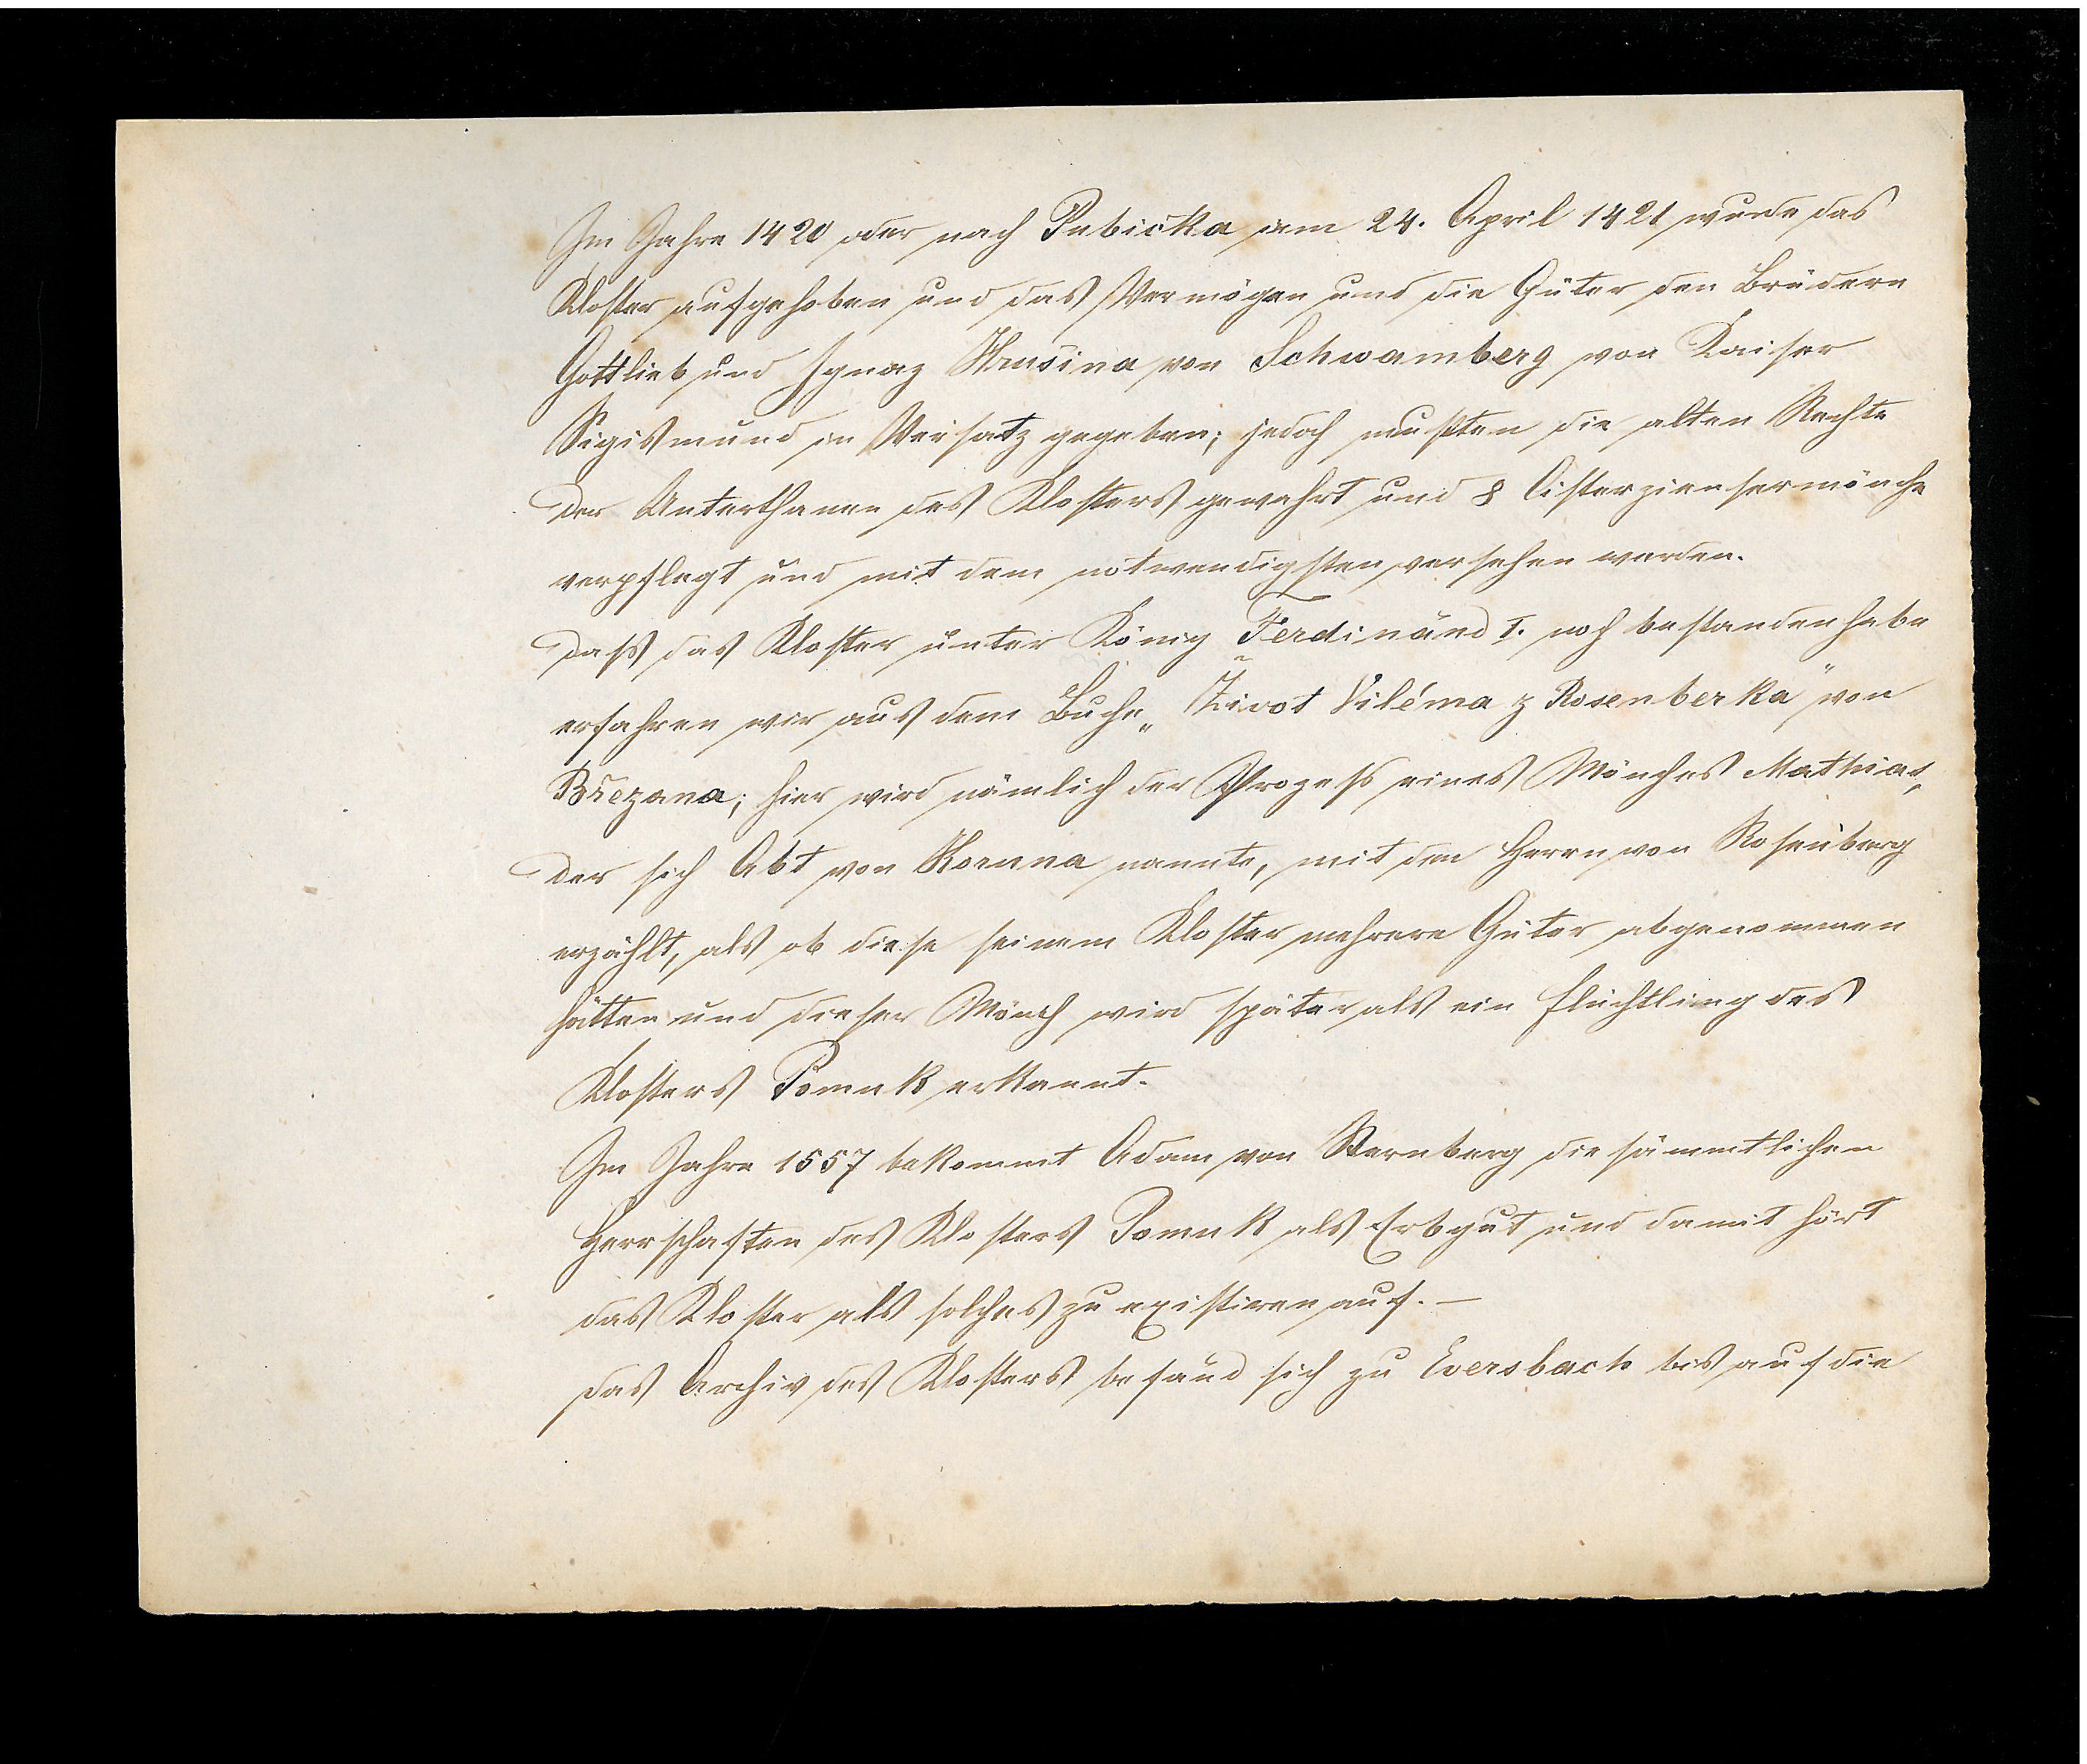 Im Jahre 1420 oder nach Pubička am 24. April 1421 wurde das
Kloster aufgehoben und das Vermögen und die Güter den Brüdern
Gottlieb und Ignaz Hrusina von Schwamberg von Kaiser
Sigismund in Versatz gegeben; jedoch mußten die alten Rechte
der Unterthanen des Klosters gewahrt und 8 Cisterziensermönche
verpflegt und mit dem notwendigsten versehen werden.
Daß das Kloster unter König Ferdinand I. noch bestanden habe
erfahren wir aus dem Buche „Život Viléma z Rosenberka" von
Březana; hier wird nämlich der Prozeß eines Mönches Mathias,
der sich Abt von Korunna nannte, mit den Herrn von Rosenberg
erzählt, als ob diese seinem Kloster mehrere Güter abgenommen
hätten und dieser Mönch wird später als ein Flüchtling des
Klosters Pomuk erkannt.
Im Jahre 1557 bekommt Adam von Sternberg die sämmtlichen
Herrschaften des Klosters Pomuk als Erbgut und damit hört
das Kloster als solches zu existiren auf. —
Das Archiv des Klosters befand sich zu Eversbach bis auf die